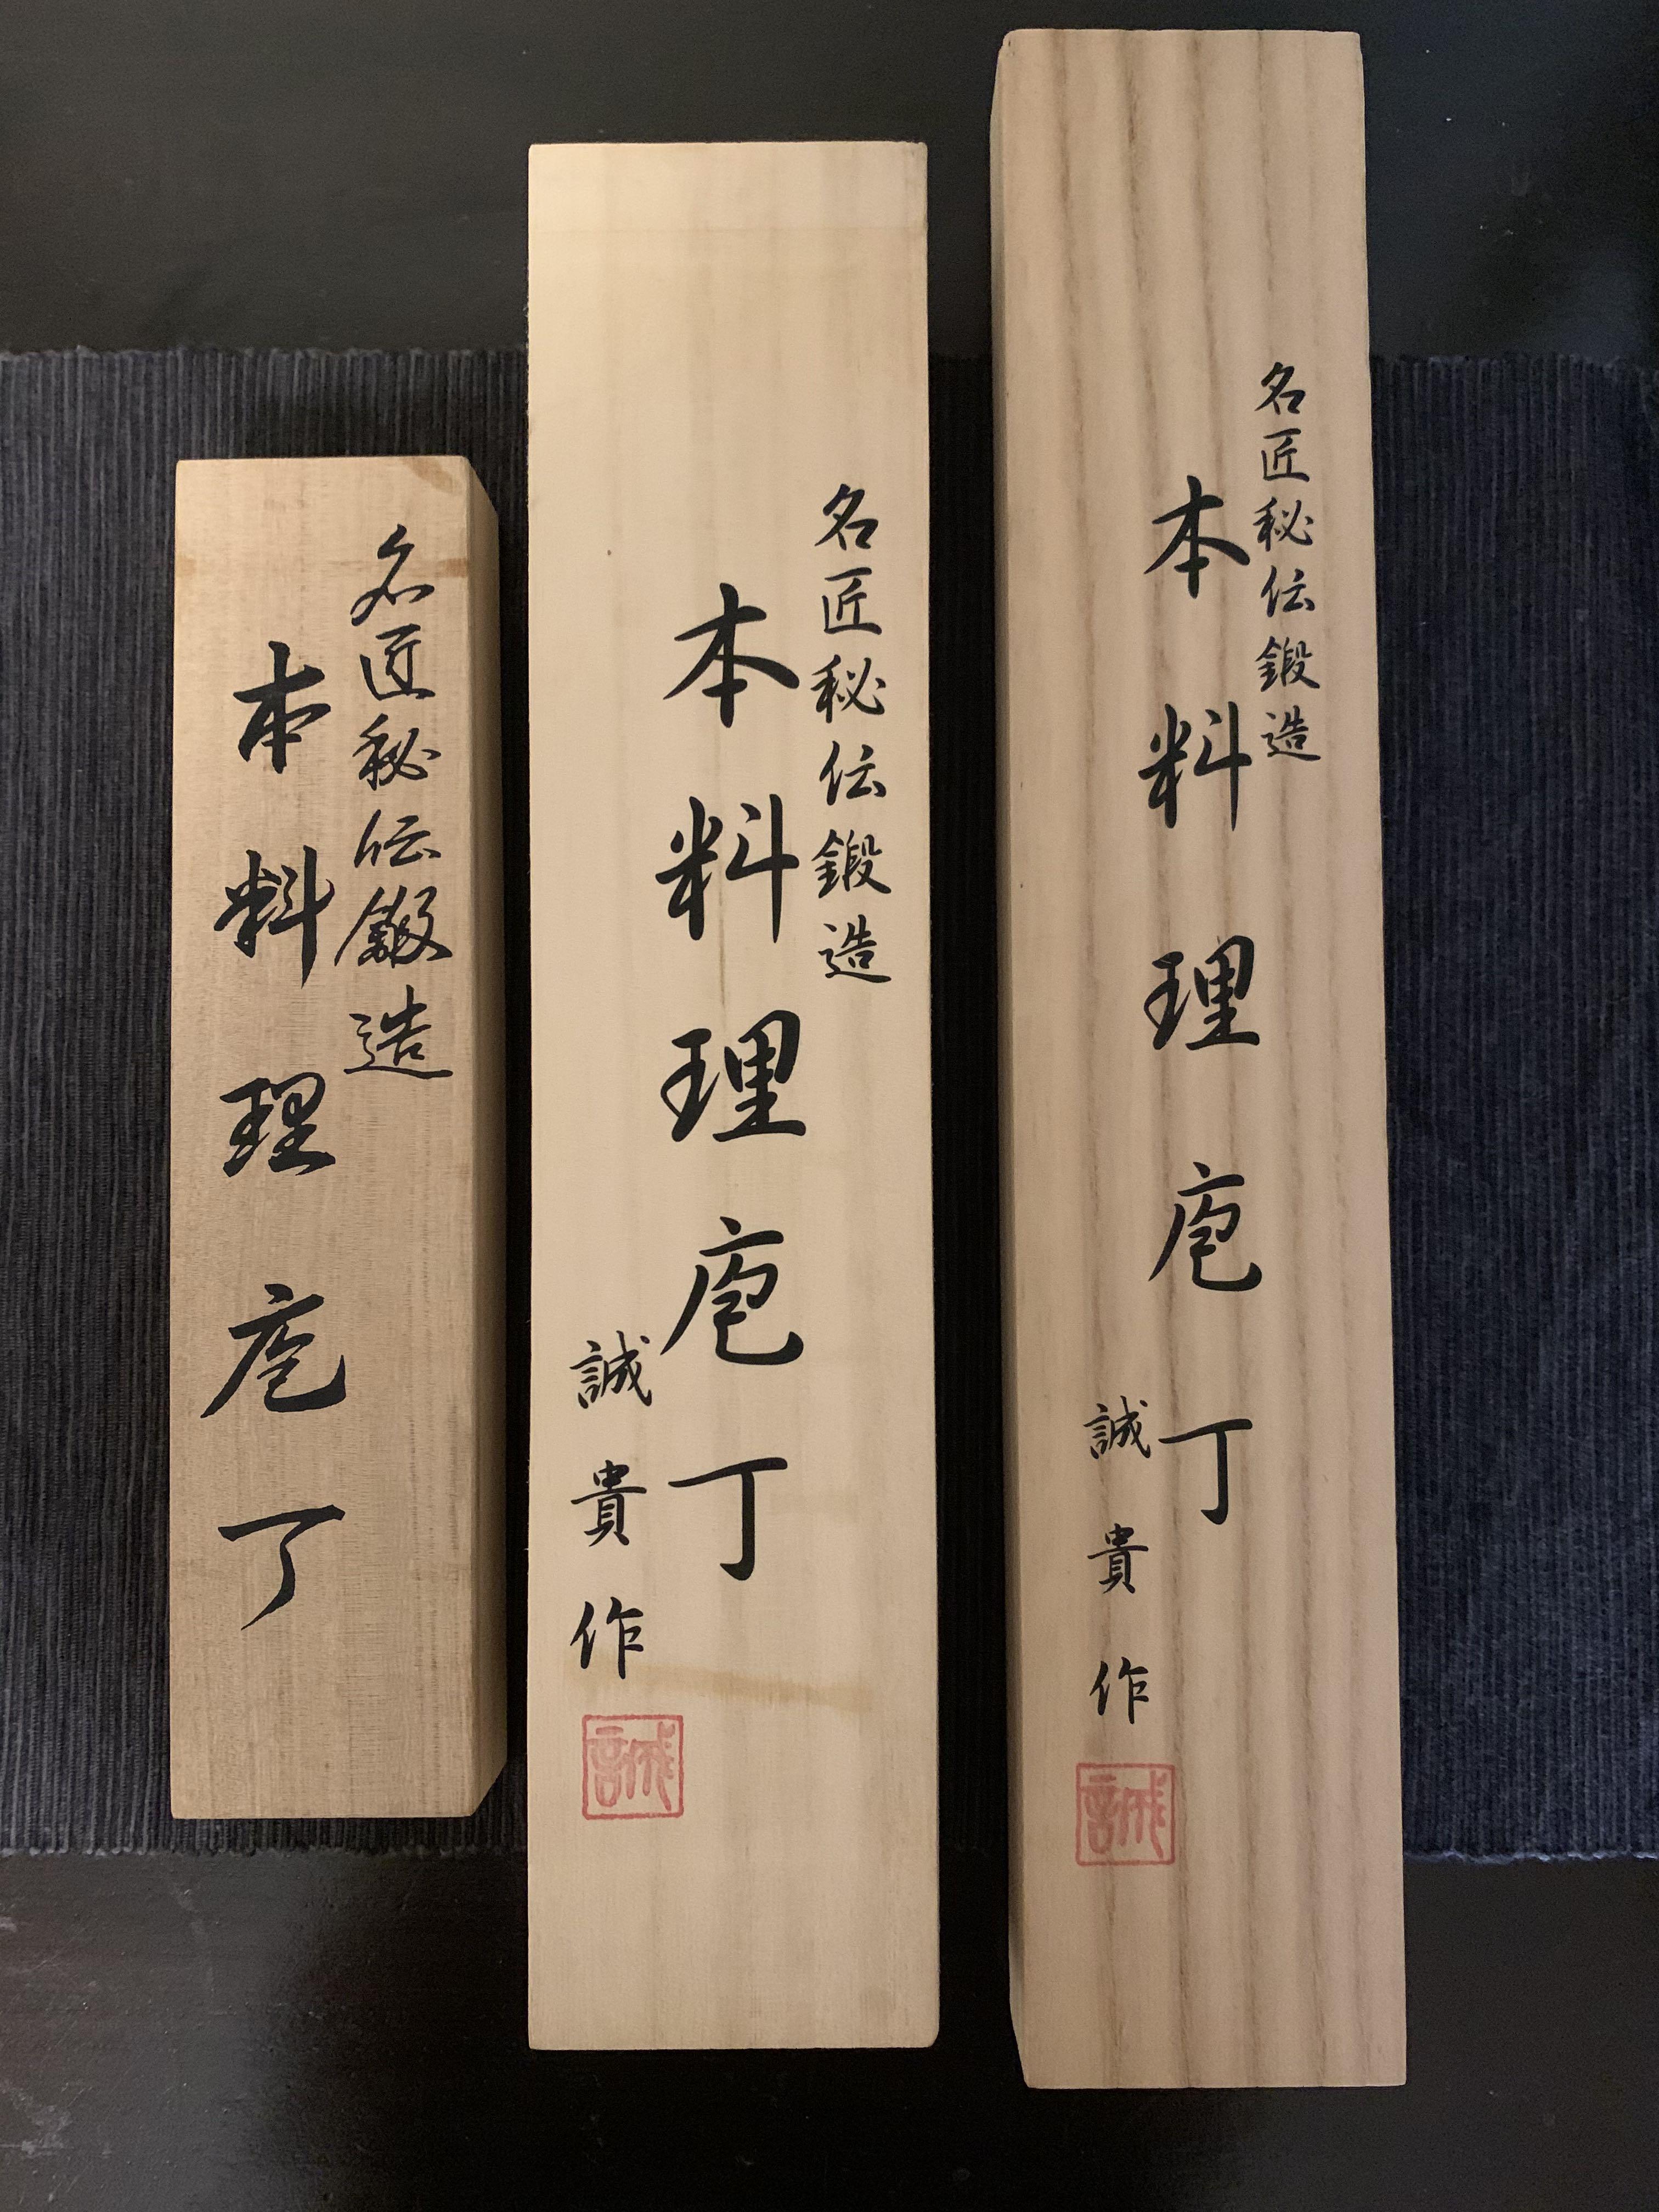 名匠秘伝鍛造
本料理庖丁
名匠秘伝鍛造
本料理庖丁
誠貴作
誠
名匠秘伝鍛造
本料理庖丁
誠貴作
誠